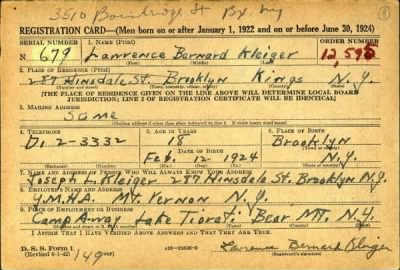 3510 Bainbridge St Bx. NY
8
REGISTRATION CARD—(Men born on or after January 1, 1922 and on or before June 30, 1924)
SERIAL NUMBER 1. NAME (Print) ORDER NUMBER
N 679 Lawrence Bernard Kleiger 12,595
(First) (Middle) (Last)
2. PLACE OF RESIDENCE (Print)
287 Hinsdale St. Brooklyn Kings N.Y.
(Number and street) (Town, township, village, or city) (County) (State)
[THE PLACE OF RESIDENCE GIVEN ON THE LINE ABOVE WILL DETERMINE LOCAL BOARD
JURISDICTION; LINE 2 OF REGISTRATION CERTIFICATE WILL BE IDENTICAL]
3. MAILING ADDRESS
Same
4. TELEPHONE 5. AGE IN YEARS 6. PLACE OF BIRTH
DI 2-3332 18 Brooklyn
DATE OF BIRTH (Town or county)
Feb. 12 1924 N.Y.
(Exchange) (Number) (Mo.) (Day) (Yr.) (State or country)
7. NAME AND ADDRESS OF PERSON WHO WILL ALWAYS KNOW YOUR ADDRESS
Joseph L. Kleiger 287 Hinsdale St. Brooklyn N.Y.
8. EMPLOYER'S NAME AND ADDRESS
Y.M.H.A. Mt. Vernon N.Y.
9. PLACE OF EMPLOYMENT OR BUSINESS
Camp Lake Tiorati Bear Mt. N.Y.
I AFFIRM THAT I HAVE VERIFIED ABOVE ANSWERS AND THAT THEY ARE TRUE.
D. S. S. Form 1
(Revised 6-1-42) (over)
149
Lawrence Bernard Kleiger